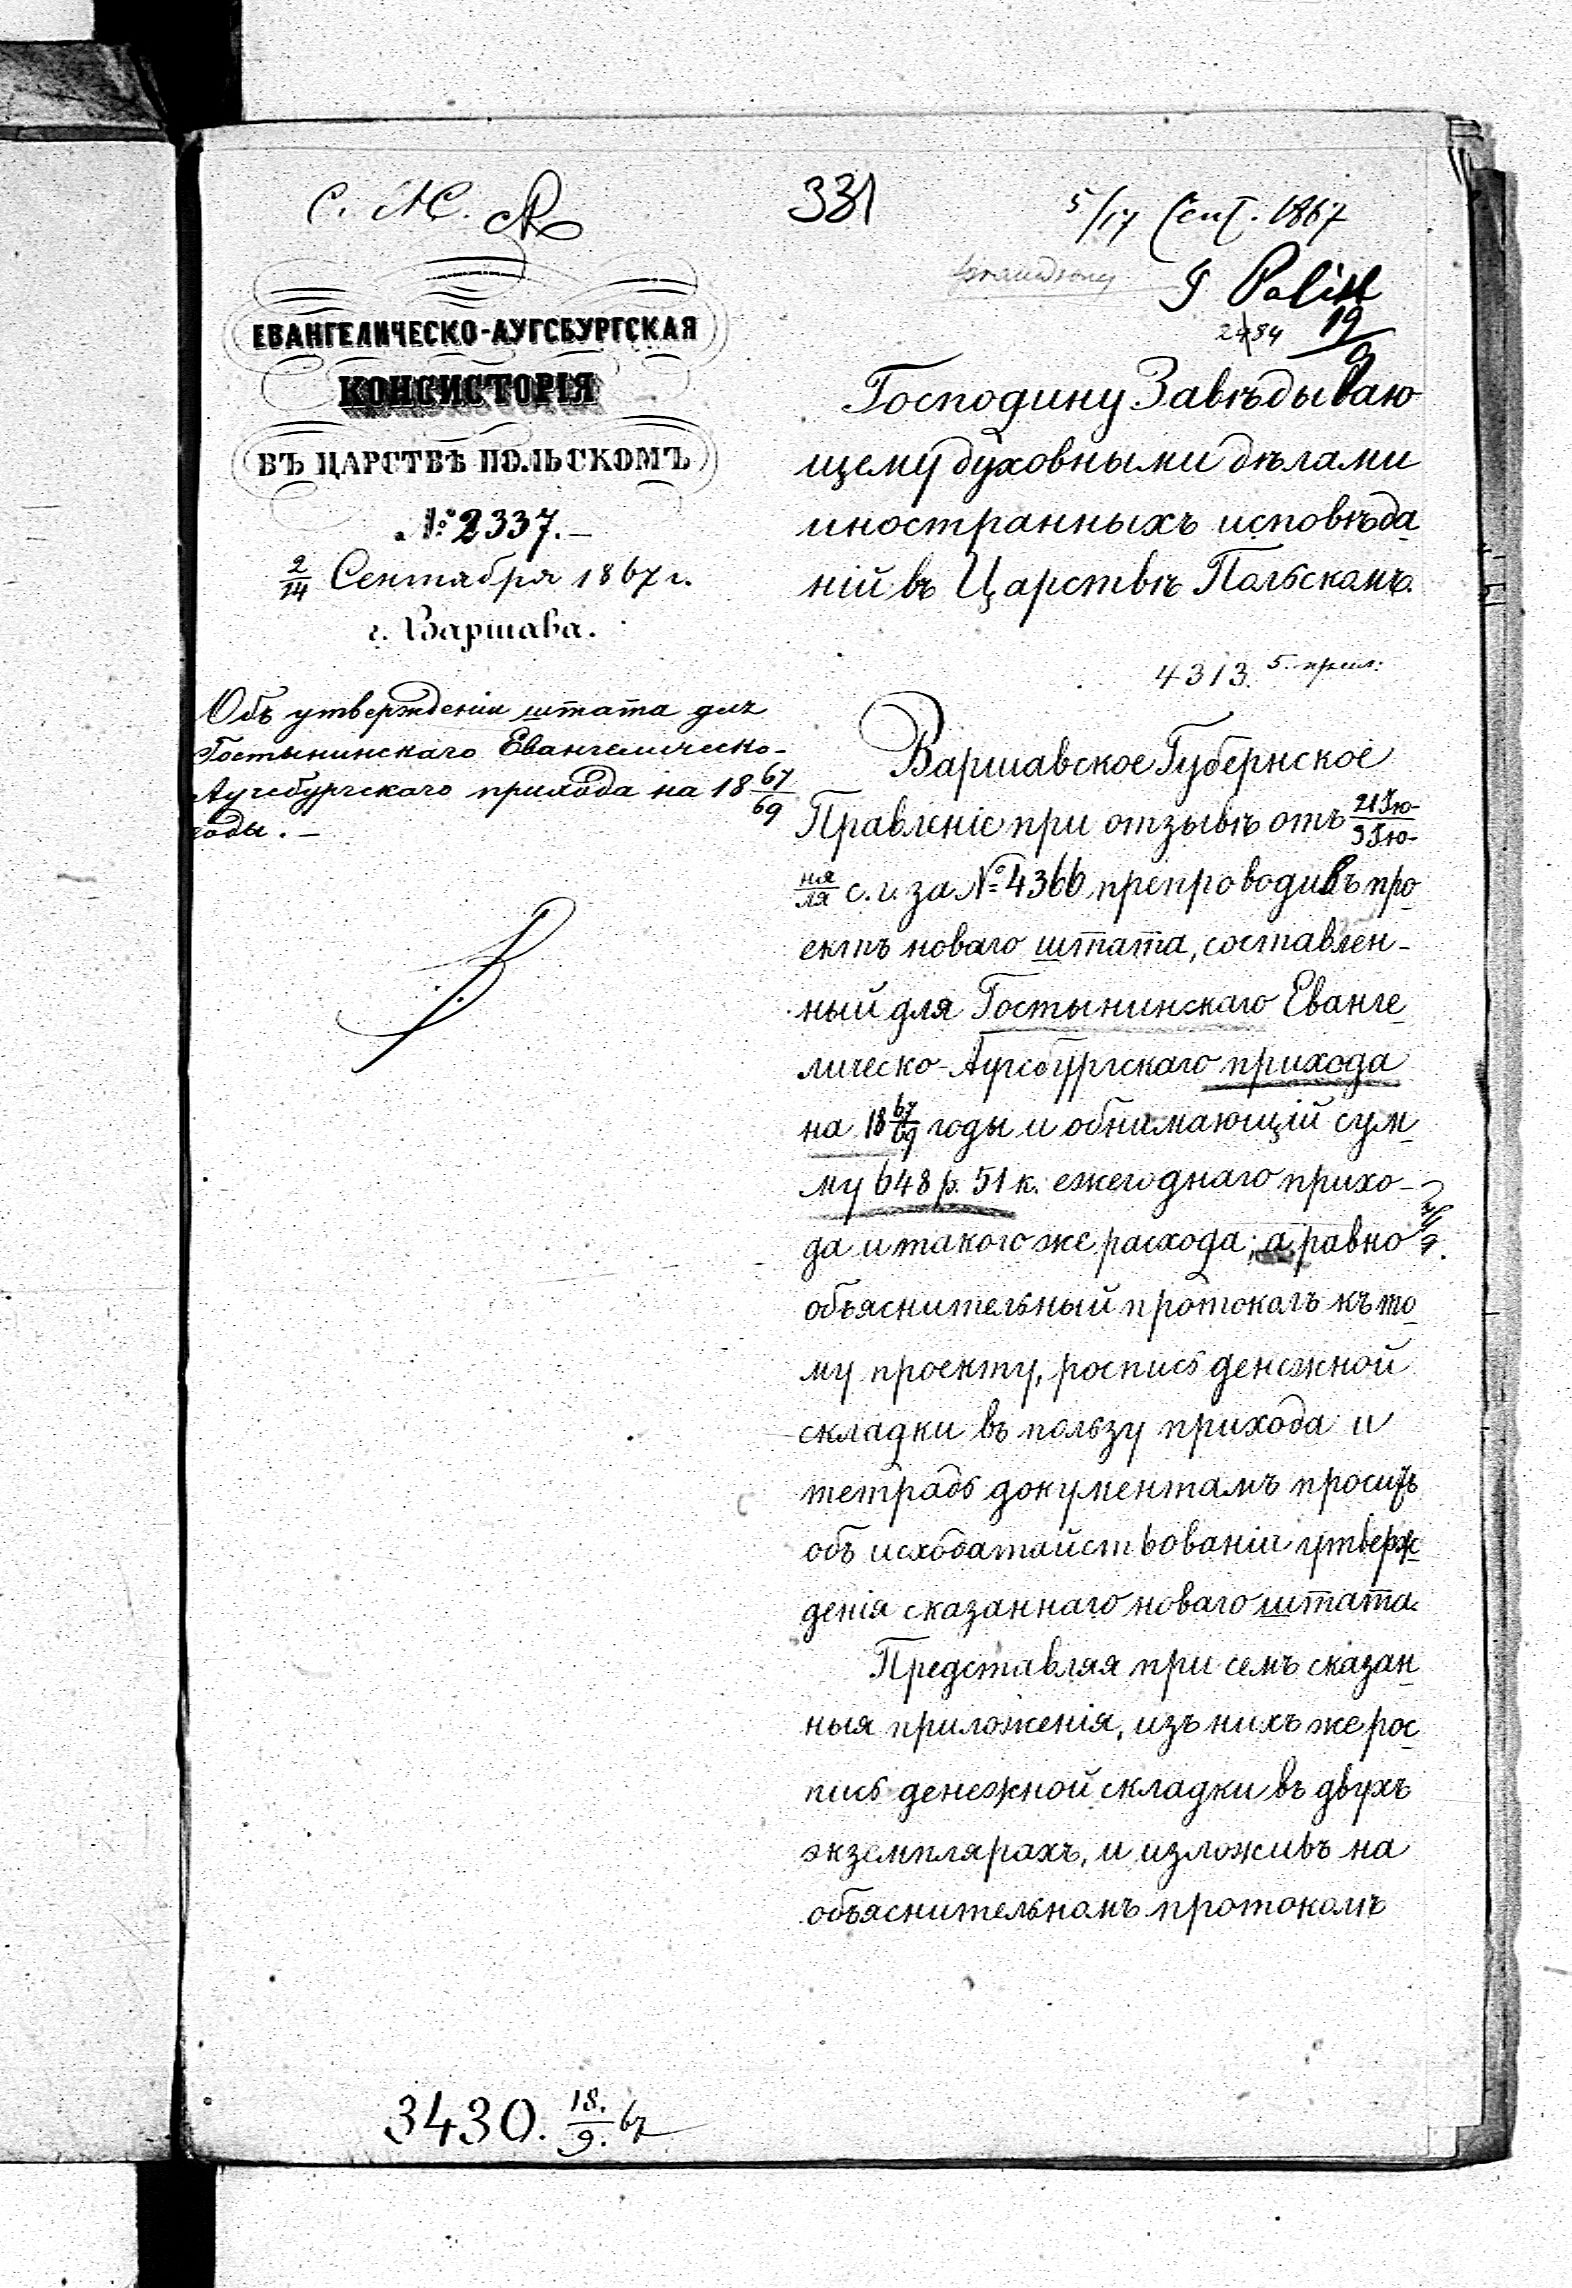 С. Ж.
331
5/17 Сент. 1867
2484
19/9
ЕВАНГЕЛИЧЕСКО-АУГСБУРГСКАЯ
КОНСИСТОРІЯ
ВЪ ЦАРСТВѢ ПОЛЬСКОМЪ
№ 2337.-
2/14 Сентября 1867 г.
г. Варшава.
Объ утвержденіи штата для
Гостынинскаго Евангелическо-
Аугсбургскаго прихода на 18 67/69
годы. -
Господину Завѣдываю
щему духовными дѣлами
иностранныхъ исповѣда
ній въ Царствѣ Польскомъ.
4313. 5. прил:
Варшавское Губернское
Правленіе при отзывѣ отъ 21 Ію-/3 Ію-
ня/ля с. г. за № 4366 препроводивъ про
ектъ новаго штата, составлен-
ный для Гостынинскаго Еванге
лическо-Аугсбургскаго прихода
на 18 67/69 годы и обнимающій сум
му 648 р. 51 к. ежегоднаго прихо-
да и такого же расхода; а равно
объяснительный протоколъ къ то
му проекту, роспись денежной
складки въ пользу прихода и
тетрадь документамъ проситъ
объ исходатайствованіи утверж
денія сказаннаго новаго штата.
Представляя при семъ сказан
ныя приложенія, изъ нихъ же рос
пись денежной складки въ двухъ
экземплярахъ, и изложивъ на
объяснительномъ протоколѣ
3430. 18./9. 67